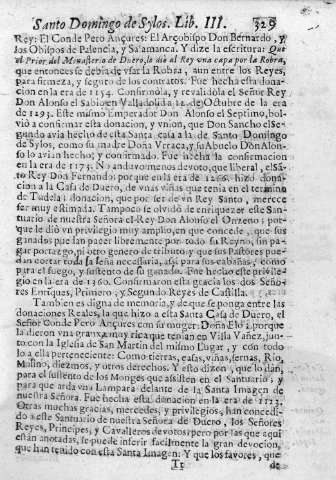 Santo Domingo de Sylos. Lib. III. 329
Rey: El Conde Pero Ançures: El Arçobispo Don Bernardo, y
los Obispos de Palencia, y Salamanca. Y dize la escritura: Que
el Prior del Monasterio de Duero, le dió al Rey una capa por la Robra,
que entonces se debia de vsar la Robra, aun entre los Reyes,
para firmeza, y seguro de los contratos. Fue hecha esta donacion
en la era de 1154. Confirmòla, y revalidòla el Señor Rey
Don Alonso el Sabio en Valladolid à 12. de Octubre de la era
de 1293. Este mismo Emperador Don Alonso el Septimo, bol-
viò a confirmar esta donacion, y vnion, que Don Sancho el Se-
gundo avia hecho de esta Santa casa a la de Santo Domingo
de Sylos, como su madre Doña Vrraca, y su Abuelo Don Alon-
so lo avian hecho; y confirmado. Fue hecha la confirmacion
en la era de 1173. No anduvo menos devoto, que liberal, el Sã-
to Rey Don Fernando: porque en la era de 1266. hizo dona-
cion a la Casa de Duero, de vnas viñas que tenia en el termino
de Tudela: donacion, que por ser de vn Rey Santo, merece
ser muy estimada. Tampoco se olvidò de enriquezer este San-
tuario de nuestra Señora el Rey Don Alonso el Onzeno: por-
que le diò vn privilegio muy amplio, en que concede, que sus
ganados puedan pacer libremente por todo su Reyno, sin pa-
gar portazgo, ni otro genero de tributo: y que sus Pastores pue-
dan cortar toda la leña necessaria, assi para sus cabañas; como
para el fuego, y sustento de su ganado. Fue hecho este privile-
gio en la era de 1360. Confirmaron esta gracia los dos Seño-
res Enriques, Primero, y Segundo Reyes de Castilla.
Tambien es digna de memoria, y de que se ponga entre las
donaciones Reales, la que hizo a esta Santa Casa de Duero, el
Señor Conde Pero Ançures con su muger Doña Elo: porque
la dieron vna granja muy rica que tenian en Villa Vañez, jun-
to con la Iglesia de San Martin del mismo Lugar, y con todo
lo a ella perteneciente: Como tierras, casas, viñas, sernas, Rio,
Molino, diezmos, y otros derechos. Y esto dizen, que lo dàn,
para el sustento de los Monges que assisten en el Santuario; y
para que arda vna Lampara delante de la Santa Imagen de
nuestra Señora. Fue hecha esta donacion en la era de 1123.
Otras muchas gracias, mercedes, y privilegios, han concedi-
do a este Santuario de nuestra Señora de Duero, los Señores
Reyes, Principes, y Cavalleros devotos: pero por las que aqui
estàn anotadas, se puede inferir facilmente la gran devocion,
que han tenido con esta Santa Imagen: Y que los favores, que
Tt de